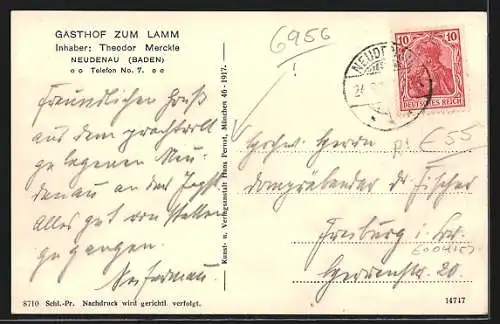 GASTHOF ZUM LAMM
Inhaber: Theodor Merckle
NEUDENAU (BADEN)
Telefon No. 7.
6956
!
10 10
DEUTSCHES REICH
NEUDENAU
Freundlichen Gruß
aus dem prachtvoll
gelegenen Neu-
denau an der Jagst.
Alles gut von Statten
gegangen.
Kunst- u. Verlagsanstalt Hans Pernat, München 46-1917.
Hochw. Herrn
Dompräbendar Dr. Fischer
Freiburg i. Br.
Herrenstr. 20.
E55
8710 Schl.-Pr. Nachdruck wird gerichtl. verfolgt.
14747